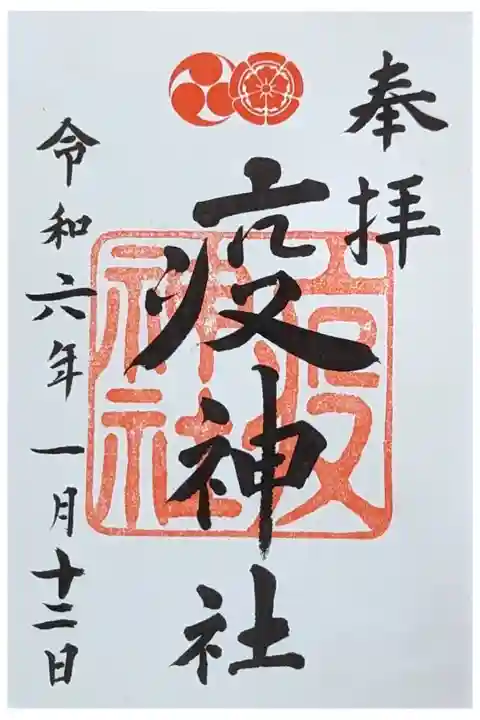 奉拝
疫神社
令和六年一月十二日